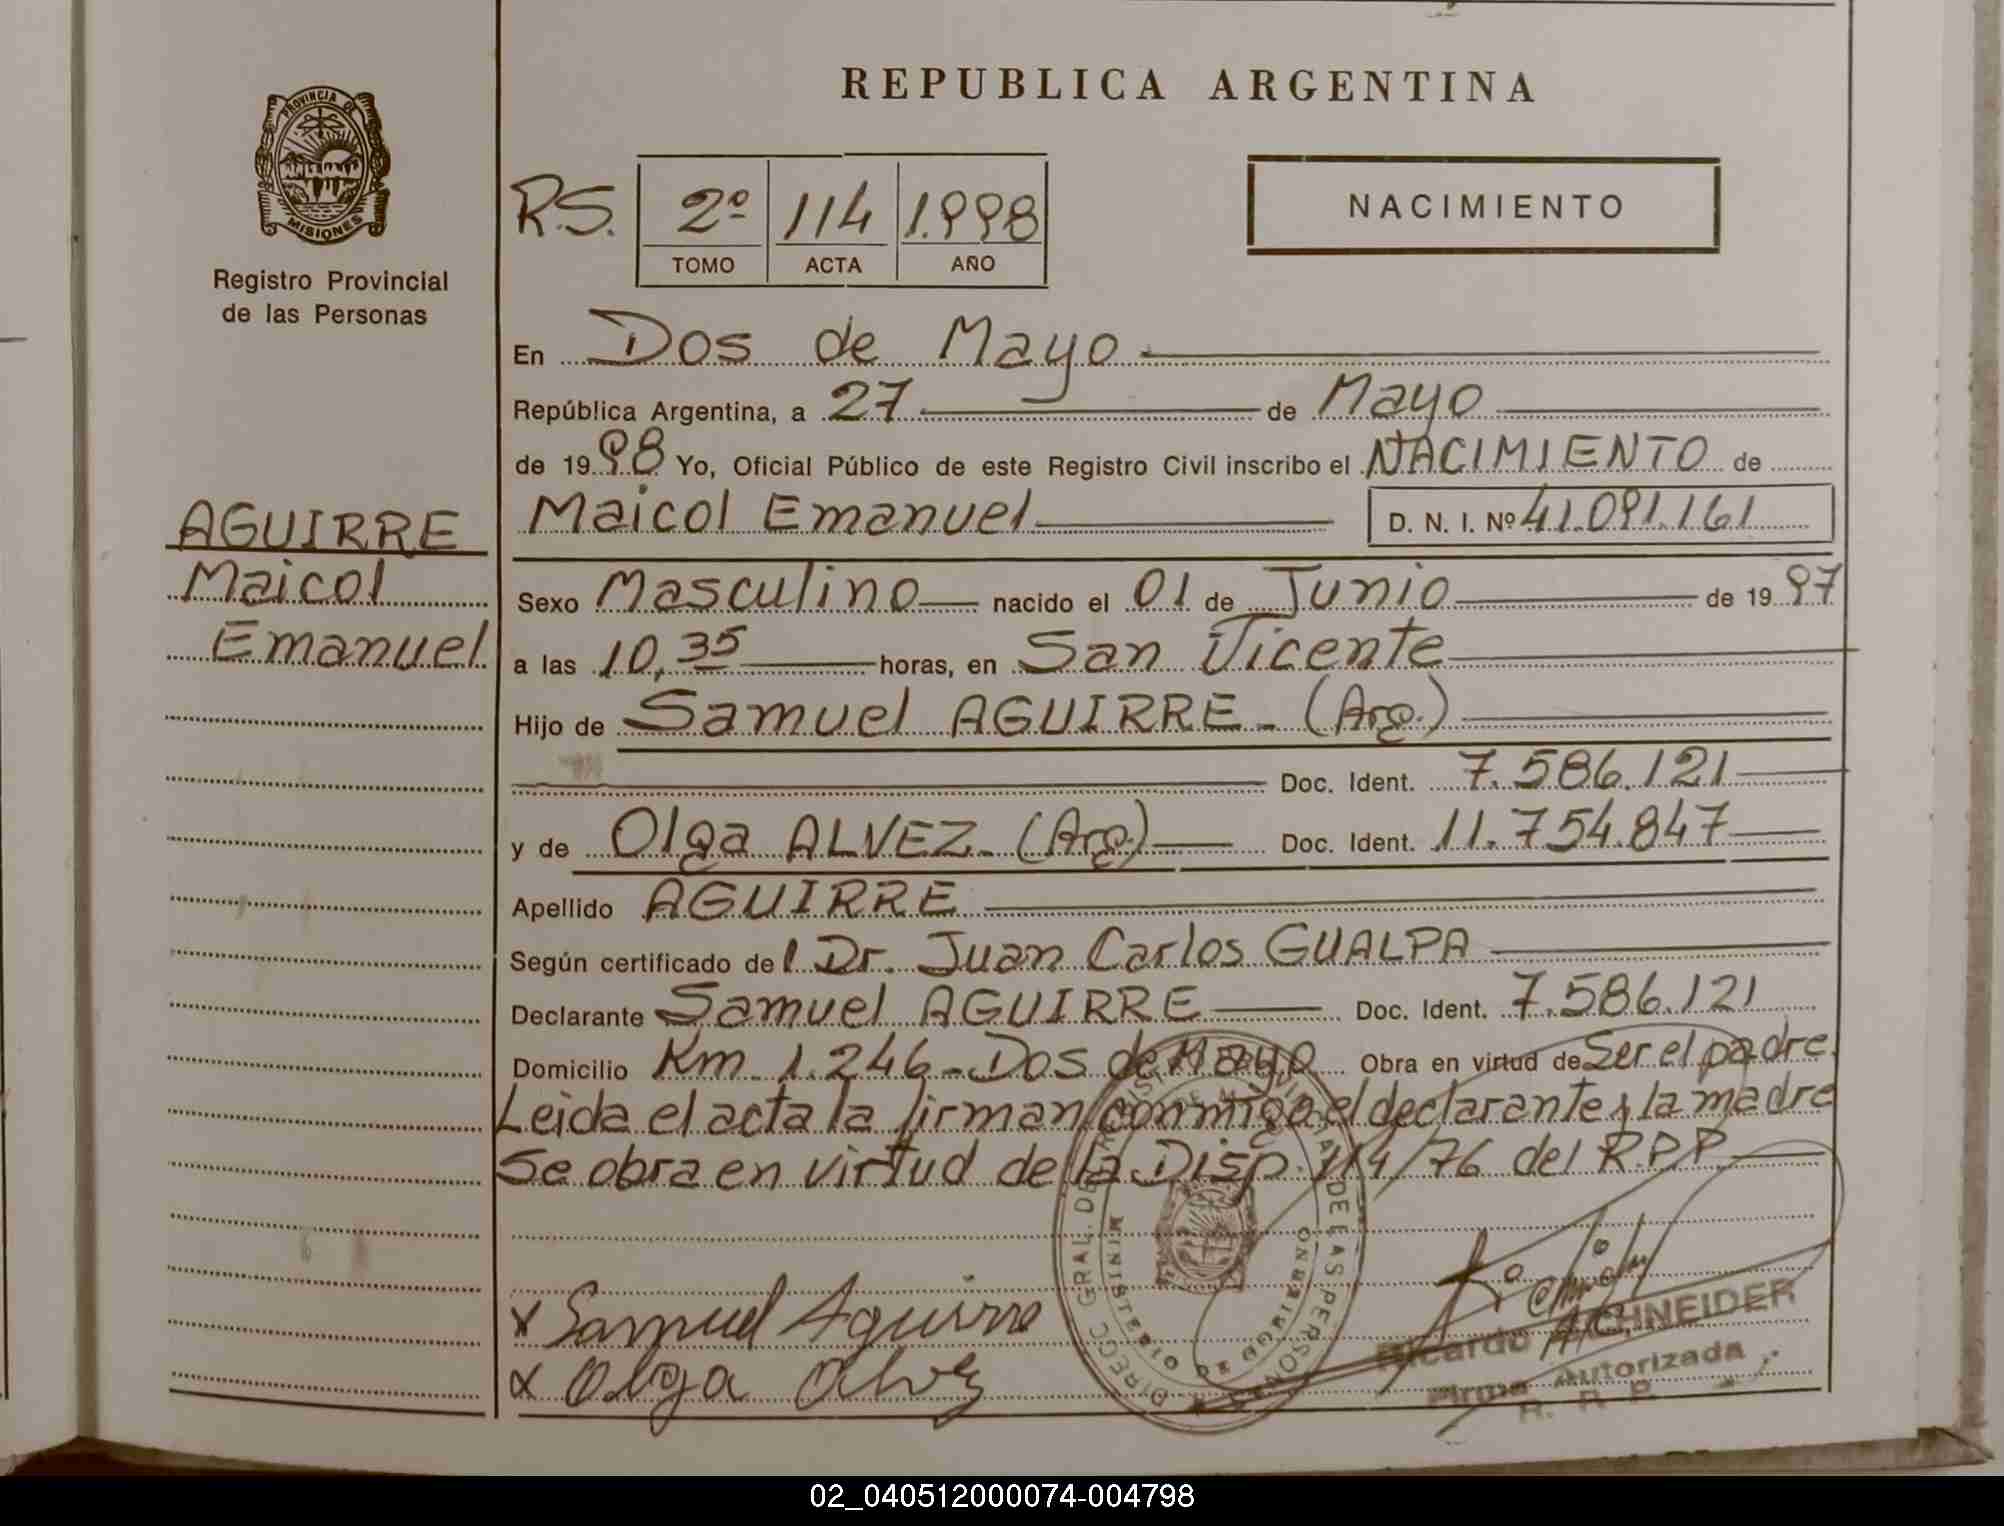 PROVINCIA DE
MISIONES
Registro Provincial
de las Personas
AGUIRRE
Maicol
Emanuel
REPUBLICA ARGENTINA
R.S. 2º 114 1.998
TOMO ACTA AÑO
NACIMIENTO
En Dos de Mayo
República Argentina, a 27 de Mayo
de 1998 Yo, Oficial Público de este Registro Civil inscribo el NACIMIENTO de
Maicol Emanuel D. N. I. Nº 41.091.161
Sexo Masculino nacido el 01 de Junio de 1997
a las 10,35 horas, en San Vicente
Hijo de Samuel AGUIRRE - (Arg.)
Doc. Ident. 7.586.121
y de Olga ALVEZ - (Arg.) Doc. Ident. 11.754.847
Apellido AGUIRRE
Según certificado del Dr. Juan Carlos GUALPA
Declarante Samuel AGUIRRE Doc. Ident. 7.586.121
Domicilio Km. 1.246 - Dos de Mayo Obra en virtud de Ser el padre.
Leida el acta la firman conmigo el declarante y la madre
Se obra en virtud de la Disp. 114/76 del R.P.P.
x Samuel Aguirre
x Olga Alvez
Ricardo SCHNEIDER
Firma Autorizada
R. P. P.
02_040512000074-004798